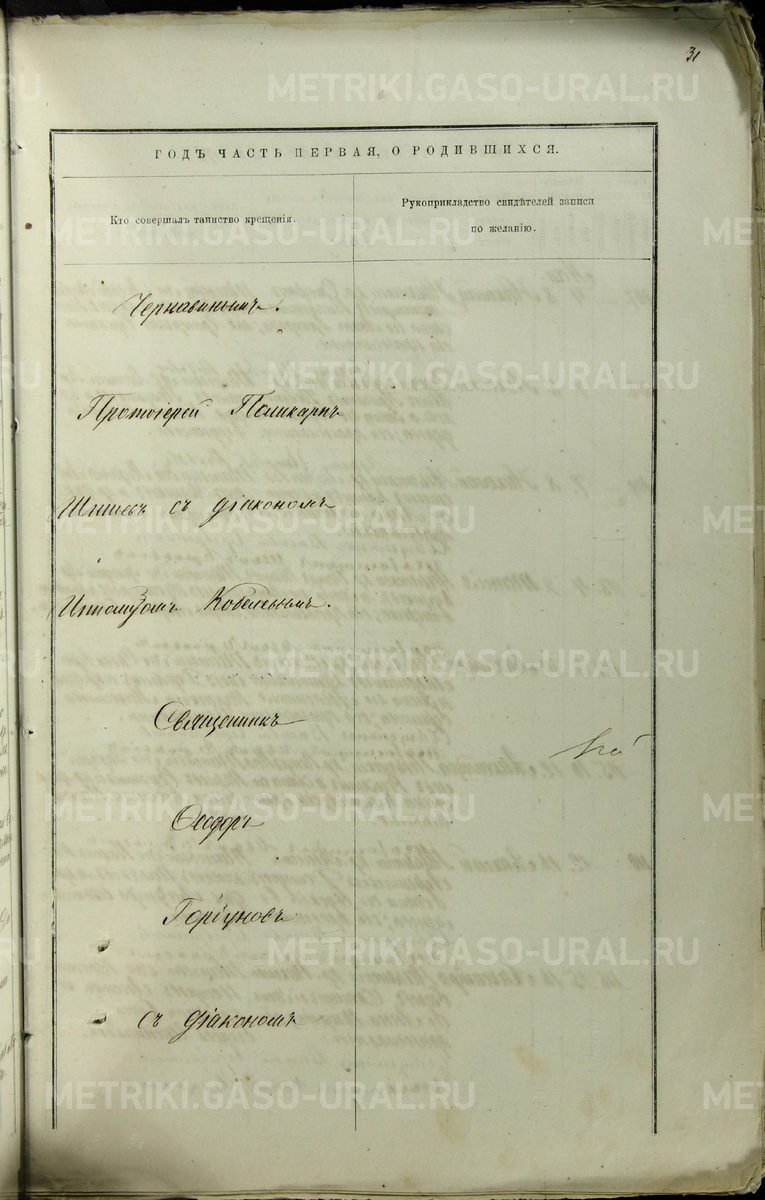 31
METRIKI.GASO-URAL.RU
ГОДЪ ЧАСТЬ ПЕРВАЯ, О РОДИВШИХСЯ.
Кто совершалъ таинство крещенія.
Рукоприкладство свидѣтелей записи
по желанію.
Чернавинымъ.
Протоіерей Поликарпъ
съ діакономъ
Священникъ
Ѳеодоръ
Горгуновъ
съ діакономъ